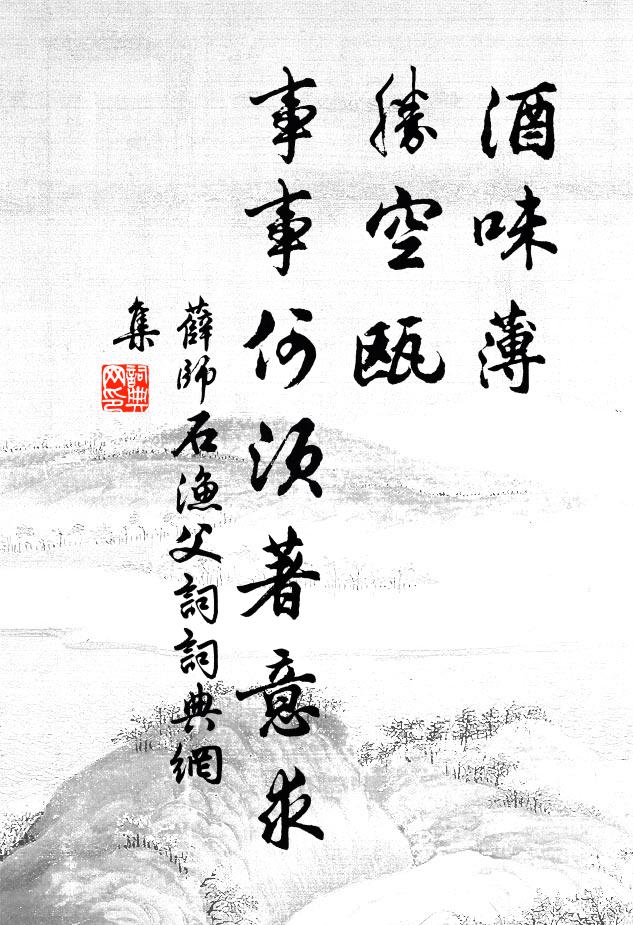 酒味薄
勝空甌
事事何須著意求
薛師石漁父詞詞典網
集
詞典網印